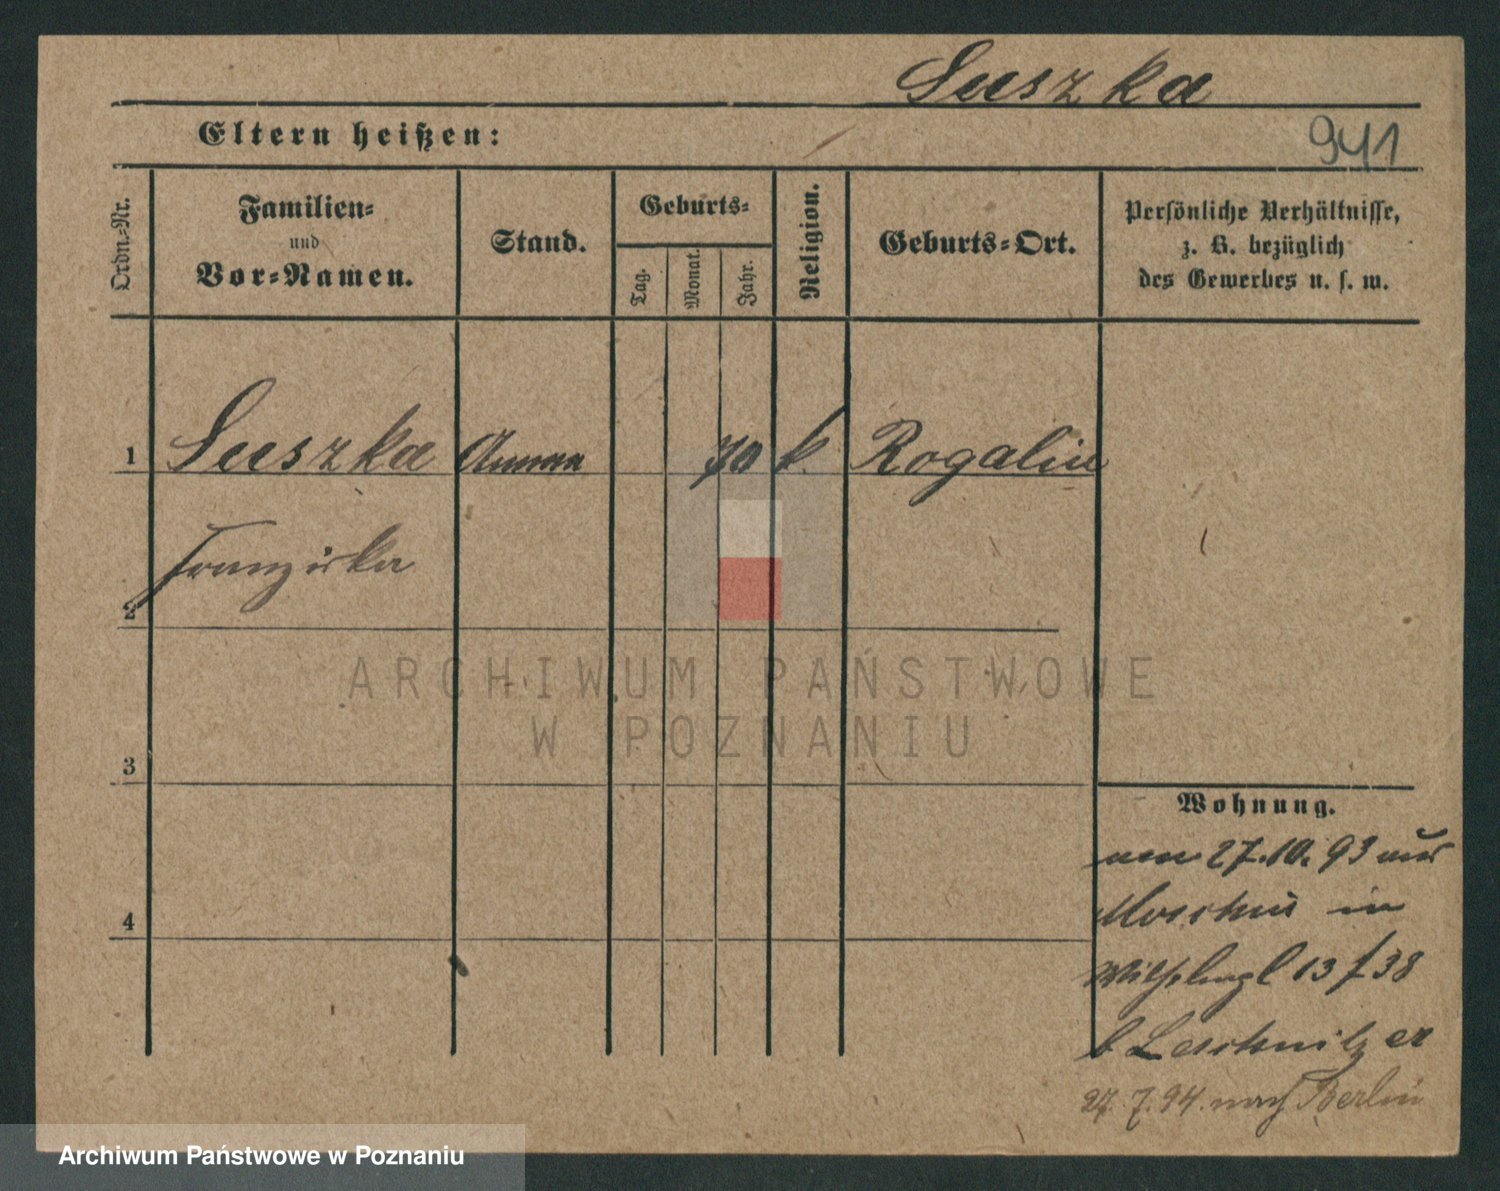 Suszka
Eltern heißen:
941
Ordn.-Nr.
Familien-
und
Vor-Namen.
Stand.
Geburts-
Tag.
Monat.
Jahr.
Religion.
Geburts-Ort.
Persönliche Verhältnisse,
z. B. bezüglich
des Gewerbes u. s. w.
1 Suszka 70 k. Rogalin
Franziska
2
ARCHIWUM PAŃSTWOWE
W POZNANIU
3
Wohnung.
27.10.93 aus
4
Moschin in
13 f 38
b Leschnitzer
27.7.94. nach Berlin
Archiwum Państwowe w Poznaniu